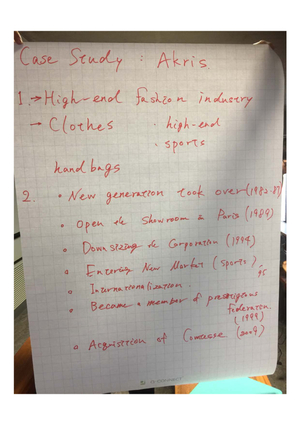 Case Study : Akris.
1. → High-end fashion industry
→ Clothes · high-end
· sports
handbags
2. · New generation took over (1982-87)
· Open the showroom in Paris (1989)
· Downsizing the Corporation (1994)
· Entering New Market (sports),
· Internationalization.
· Became a member of prestigious
federation.
(1999)
· Acquisition of Comtesse (2009)